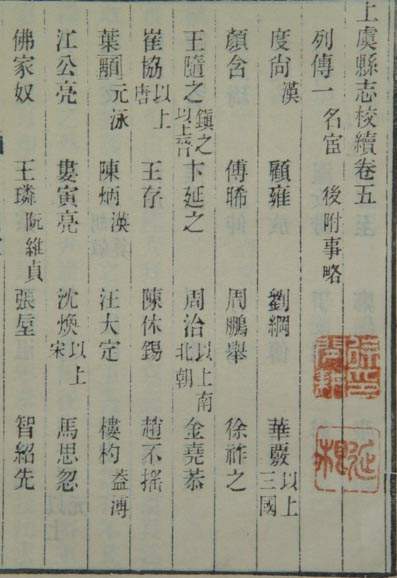 上虞縣志校續卷五
列傳一 名宦 後附事略
度尚 漢 顧雍 劉綱 華覈 以上三國
顏含 傅晞 周鵬舉 徐祚之
王隨之 鎮之以上晉 卞延之 周治 以上南北朝 金堯恭
崔協 以上唐 王存 陳休錫 趙不搖
葉顒 元泳 陳炳 汪大定 樓杓 益溥
江公亮 婁寅亮 沈煥 以上宋 馬思忽
佛家奴 王璘 阮維貞 張垕 智紹先